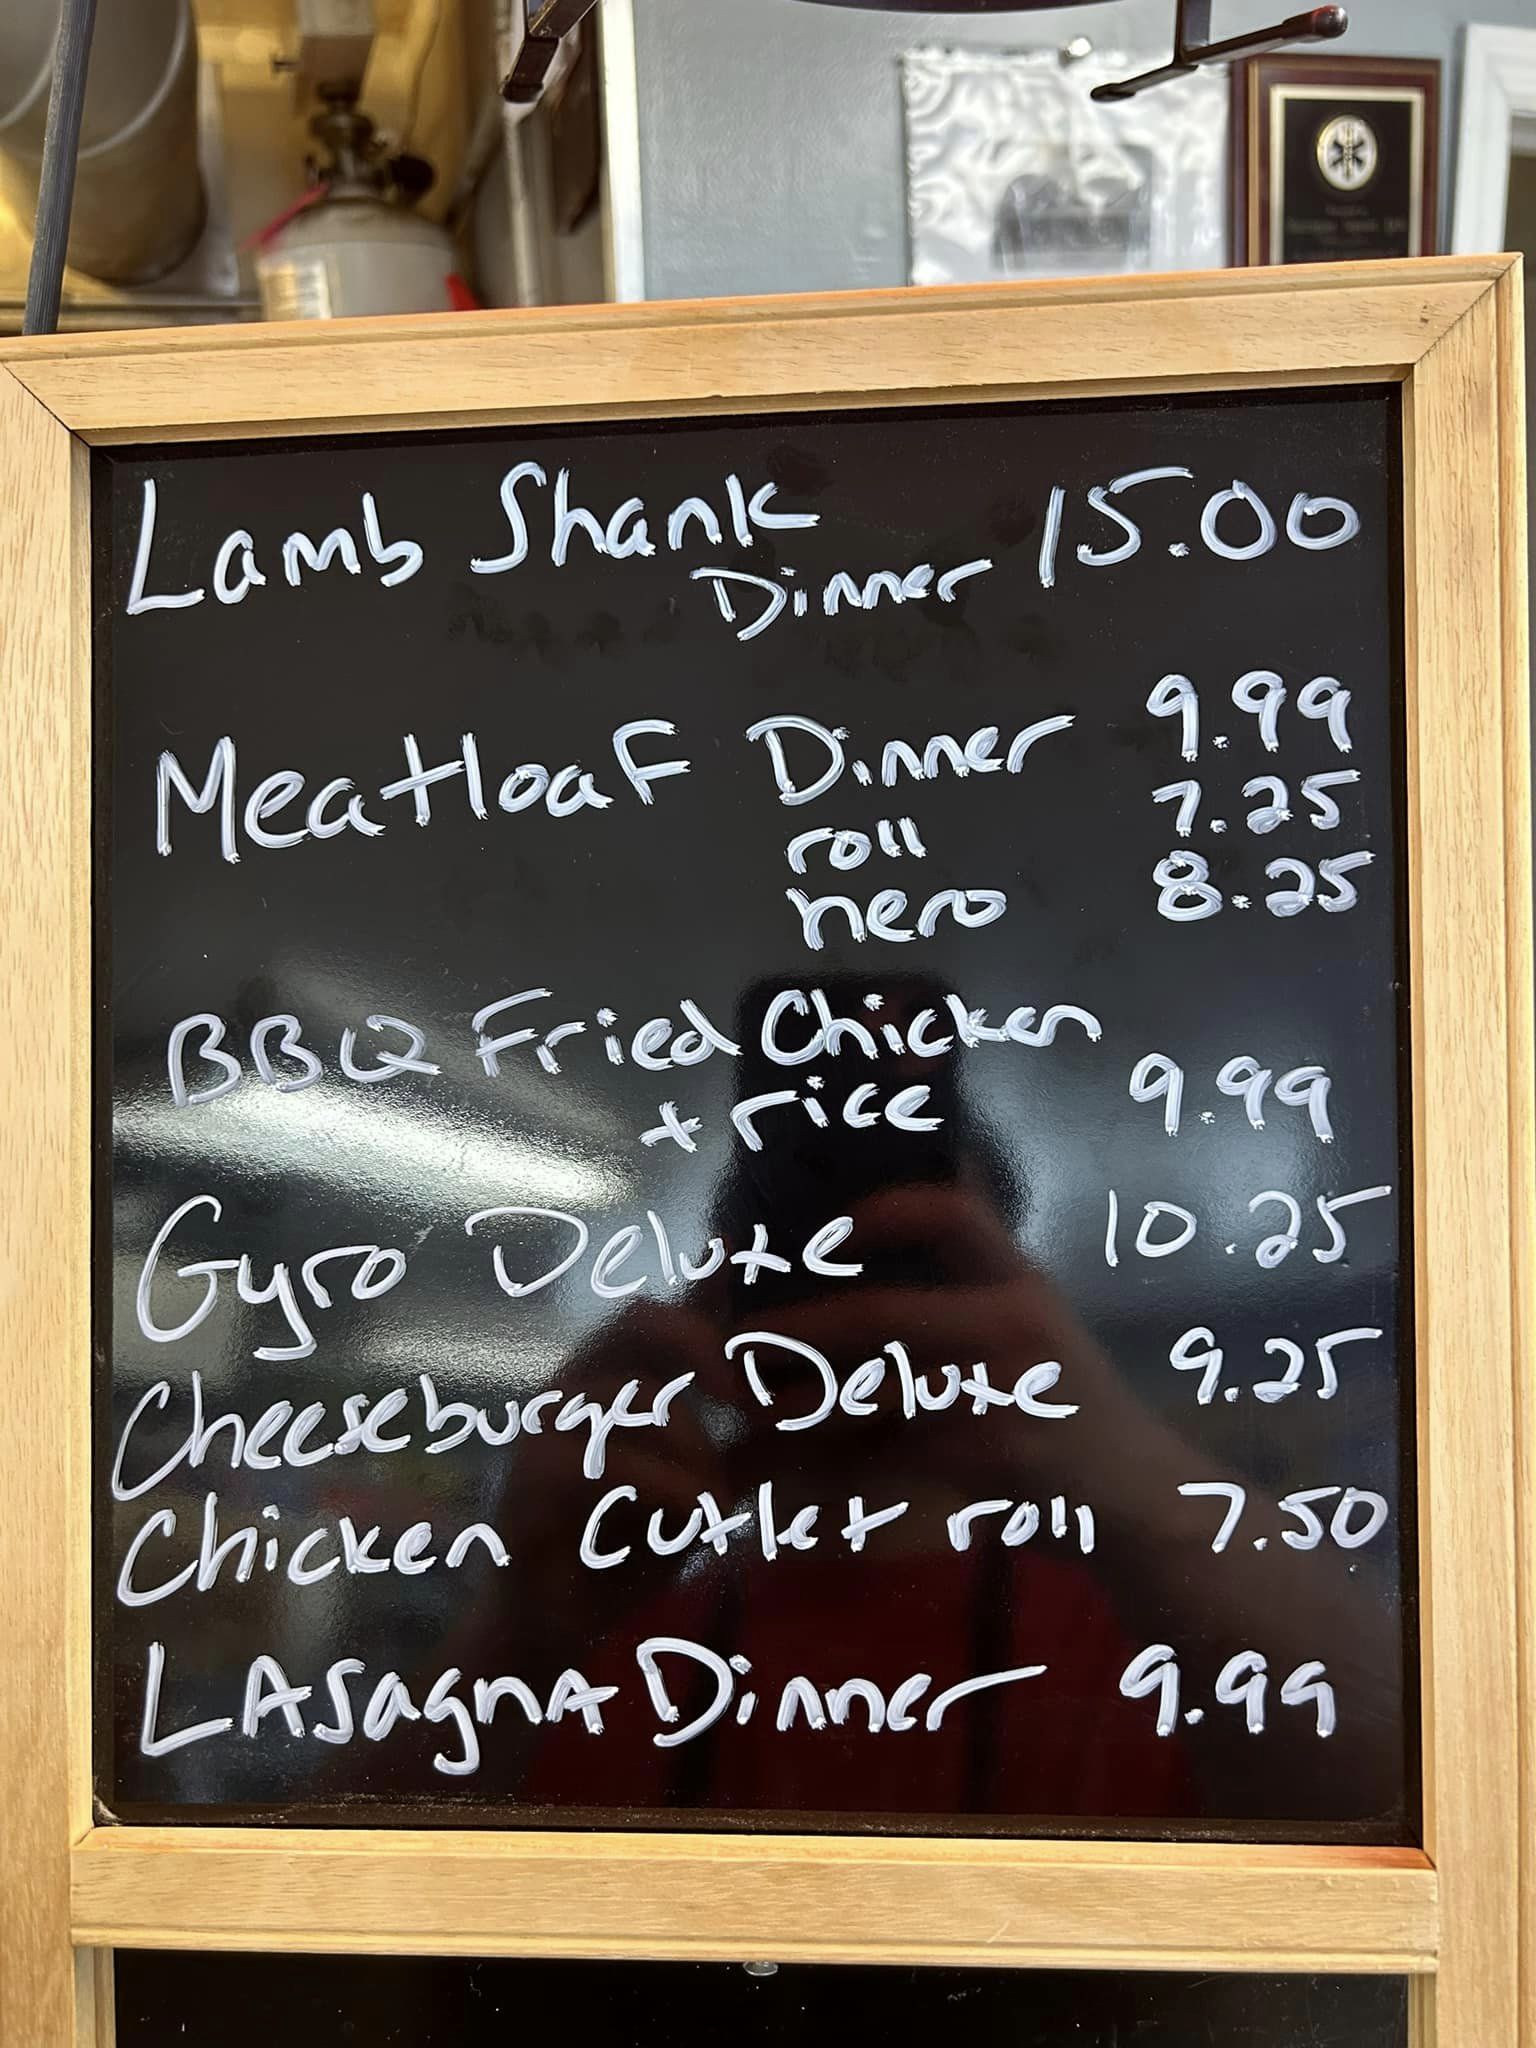 Lamb Shank 15.00
Dinner
Meatloaf Dinner 9.99
roll 7.25
hero 8.25
BBQ Fried Chicken
+ rice 9.99
Gyro Deluxe 10.25
Cheeseburger Deluxe 9.25
Chicken Cutlet roll 7.50
LASagnA Dinner 9.99